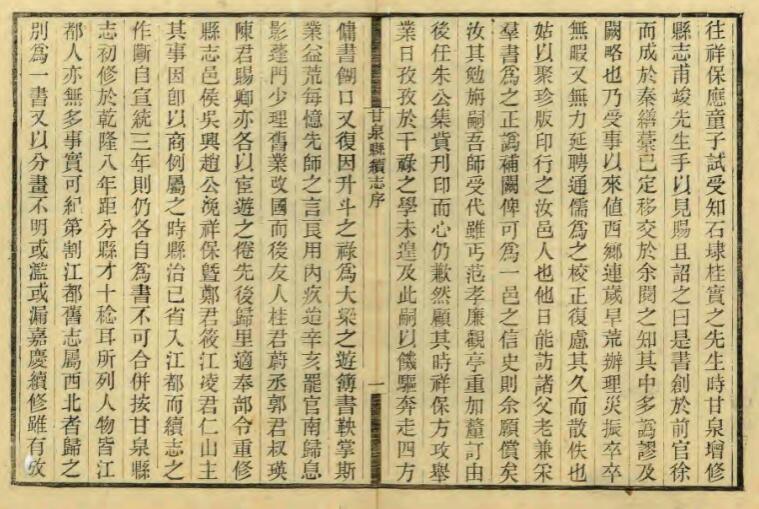 往祥保應童子試受知石埭桂實之先生時甘泉增修
縣志甫峻先生手以見賜且詔之曰是書創於前官徐
而成於秦繕藁已定移交於余閱之知其中多譌謬及
闕略也乃受事以來值西鄉連歲早荒辦理災振卒卒
無暇又無力延聘通儒爲之校正復慮其久而散佚也
姑以聚珍版印行之汝邑人也他日能訪諸父老兼采
羣書爲之正譌補闕俾可爲一邑之信史則余願償矣
汝其勉旃嗣吾師受代雖丐范孝廉觀亭重加釐訂由
後任朱公集貲刊印而心仍歉然顧其時祥保方攻舉
業日孜孜於干祿之學未遑及此嗣以饑驅奔走四方
甘泉縣續志序
一
傭書餬口又復因升斗之祿爲大梁之遊簿書鞅掌斯
業益荒每憶先師之言良用內疚迨辛亥罷官南歸息
影蓬門少理舊業改國而後友人桂君蔚丞郭君叔瑛
陳君賜卿亦各以宦遊之倦先後歸里適奉部令重修
縣志邑侯吳興趙公浼祥保暨鄭君筱江淩君仁山主
其事因卽以商例屬之時縣治已省入江都而續志之
作斷自宣統三年則仍各自爲書不可合併按甘泉縣
志初修於乾隆八年距分縣才十稔耳所列人物皆江
都人亦無多事實可紀第割江都舊志屬西北者歸之
別爲一書又以分畫不明或濫或漏嘉慶續修雖有攷